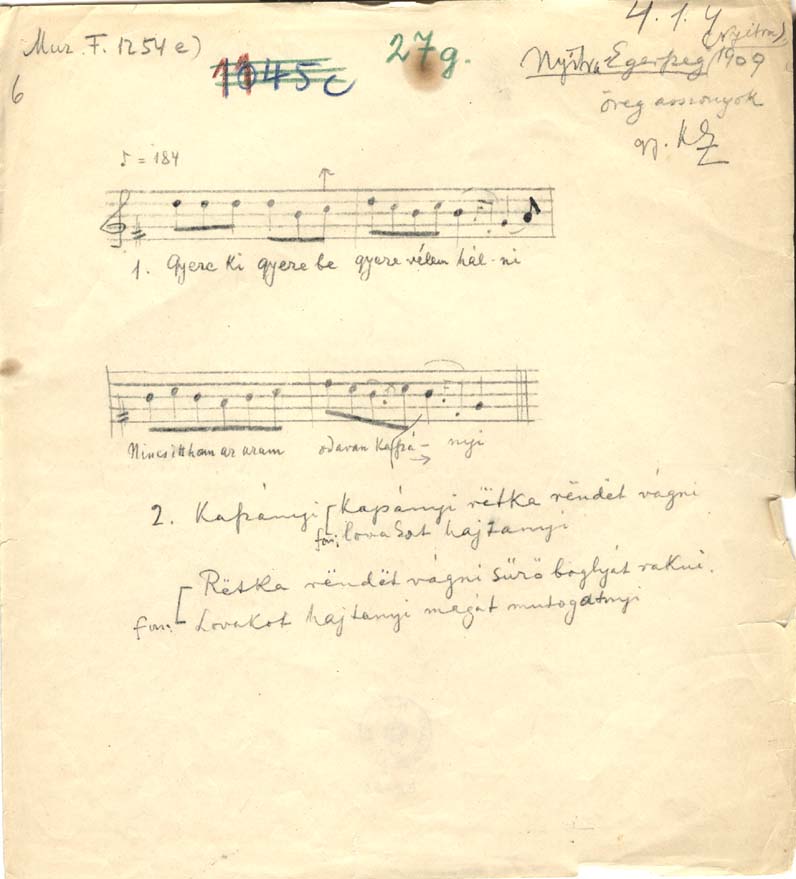 4.1.4
Muz. F. 1254 e)
27g.
(Nyitra)
1045 c
Nyitra Egerszeg 1909
6
öreg asszonyok
gy. KZ
♪ = 184
1. Gyere ki gyere be gyere vélem hál-ni
Nincs itthon az uram odavan Kapá- nyi
2. Kapányi Kapányi rëtka rëndët vágni
fon; lovakot hajtanyi
Rëtka rëndët vágni sűrő boglyát rakni.
fon; Lovakot hajtanyi magát mutogatnyi